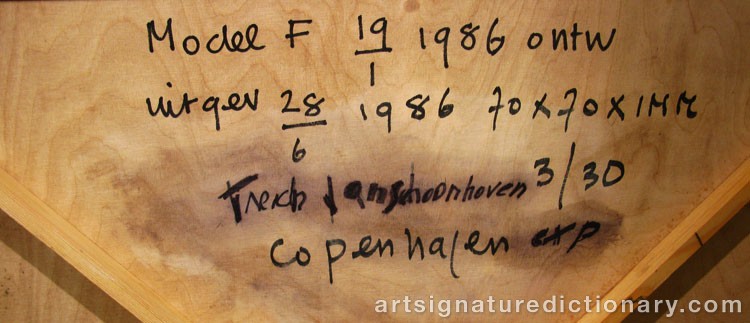 Model F 19/1 1986 ontw
uitgev 28/6 1986 70x70x1MM
Terch Janschoonhoven 3/30
copenhagen exp
artsignaturedictionary.com